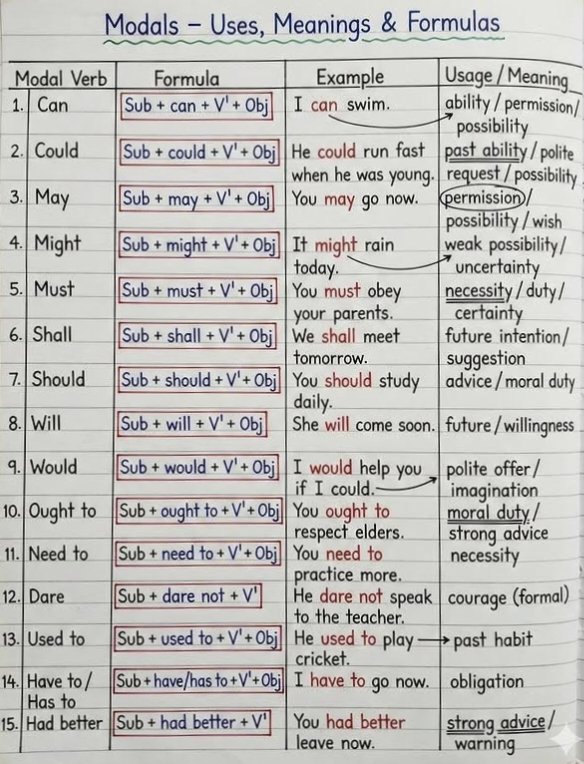 Modals – Uses, Meanings & Formulas
Modal Verb Formula Example Usage / Meaning
1. Can Sub + can + V¹ + Obj I can swim. ability / permission/
possibility
2. Could Sub + could + V¹ + Obj He could run fast past ability / polite
when he was young. request / possibility
3. May Sub + may + V¹ + Obj You may go now. permission/
possibility / wish
4. Might Sub + might + V¹ + Obj It might rain weak possibility/
today. uncertainty
5. Must Sub + must + V¹ + Obj You must obey necessity / duty/
your parents. certainty
6. Shall Sub + shall + V¹ + Obj We shall meet future intention/
tomorrow. suggestion
7. Should Sub + should + V¹ + Obj You should study advice / moral duty
daily.
8. Will Sub + will + V¹ + Obj She will come soon. future / willingness
9. Would Sub + would + V¹ + Obj I would help you polite offer /
if I could. imagination
10. Ought to Sub + ought to + V¹ + Obj You ought to moral duty /
respect elders. strong advice
11. Need to Sub + need to + V¹ + Obj You need to necessity
practice more.
12. Dare Sub + dare not + V¹ He dare not speak courage (formal)
to the teacher.
13. Used to Sub + used to + V¹ + Obj He used to play past habit
cricket.
14. Have to / Sub + have/has to + V¹ + Obj I have to go now. obligation
Has to
15. Had better Sub + had better + V¹ You had better strong advice /
leave now. warning